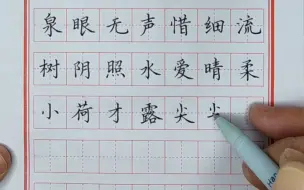 泉眼无声惜细流
树阴照水爱晴柔
小荷才露尖尖